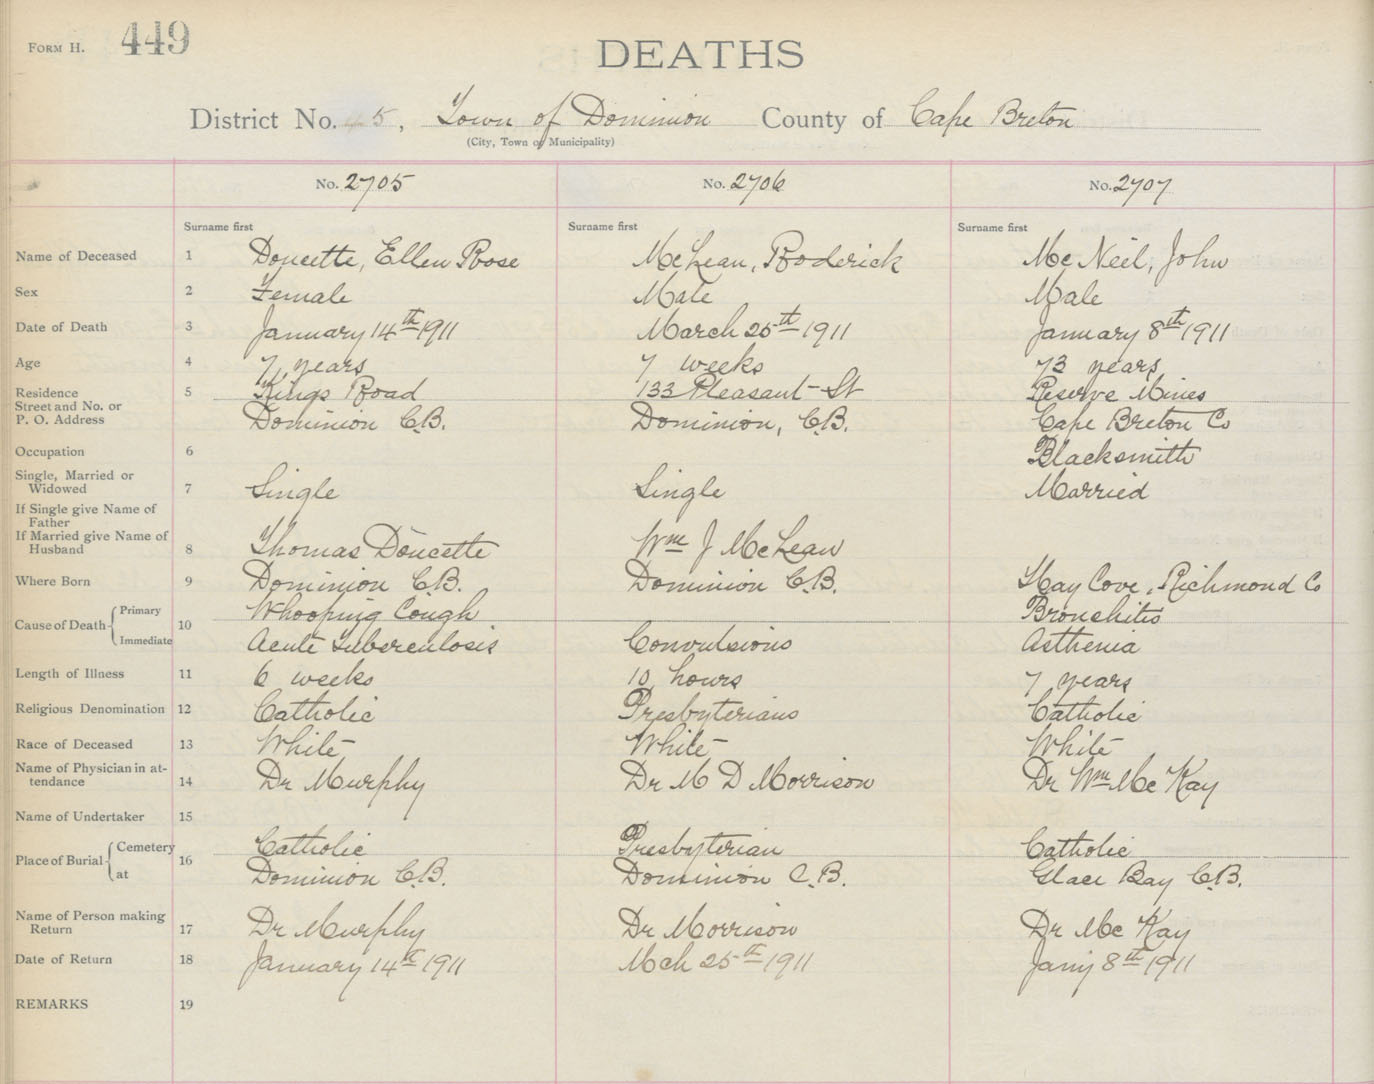 FORM H. 449
DEATHS
District No. 45, Town of Dominion County of Cape Breton
(City, Town of Municipality)
No. 2705 No. 2706 No. 2707
Surname first Surname first Surname first
Name of Deceased 1 Doucette, Ellen Rose McLean, Roderick Mc Neil, John
Sex 2 Female Male Male
Date of Death 3 January 14th 1911 March 25th 1911 January 8th 1911
Age 4 7 years 7 weeks 73 years
Residence 5 Kings Road 133 Pleasant St Reserve Mines
Street and No. or
P. O. Address Dominion C.B. Dominion, C.B. Cape Breton Co
Occupation 6 Blacksmith
Single, Married or
Widowed 7 Single Single Married
If Single give Name of
Father
If Married give Name of
Husband 8 Thomas Doucette Wm J McLean
Where Born 9 Dominion C.B. Dominion C.B. Hay Cove, Richmond Co
Cause of Death Primary 10 Whooping Cough Bronchitis
Immediate Acute Tuberculosis Convulsions Asthenia
Length of Illness 11 6 weeks 10 hours 7 years
Religious Denomination 12 Catholic Presbyterians Catholic
Race of Deceased 13 White White White
Name of Physician in at-
tendance 14 Dr Murphy Dr M D Morrison Dr Wm Mc Kay
Name of Undertaker 15
Place of Burial Cemetery 16 Catholic Presbyterian Catholic
at Dominion C.B. Dominion C.B. Glace Bay C.B.
Name of Person making
Return 17 Dr Murphy Dr Morrison Dr Mc Kay
Date of Return 18 January 14th 1911 Mch 25th 1911 Jany 8th 1911
REMARKS 19